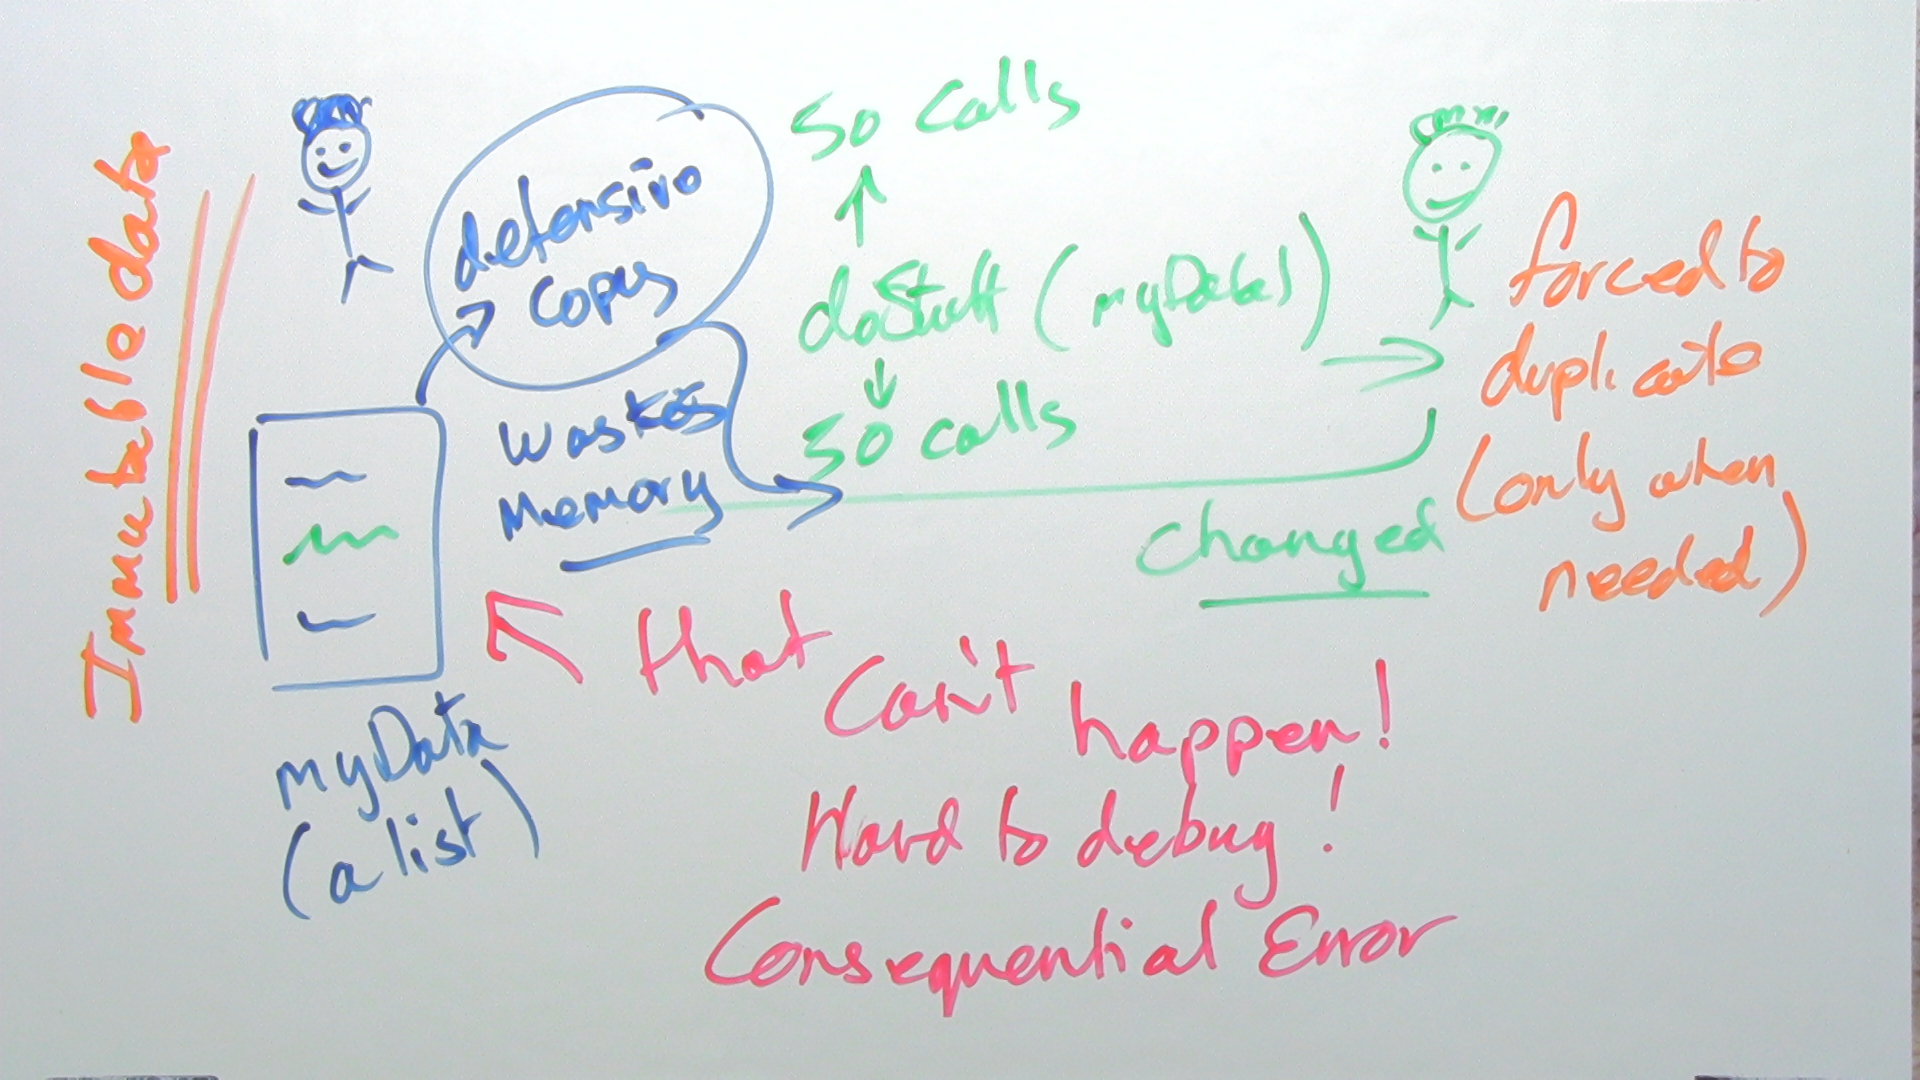 Immutable data
defensive
copy
wastes
Memory
myData
(a list)
50 calls
doStuff (myData)
50 calls
changed
forced to
duplicate
(only when
needed)
that can't happen!
Hard to debug!
Consequential Error